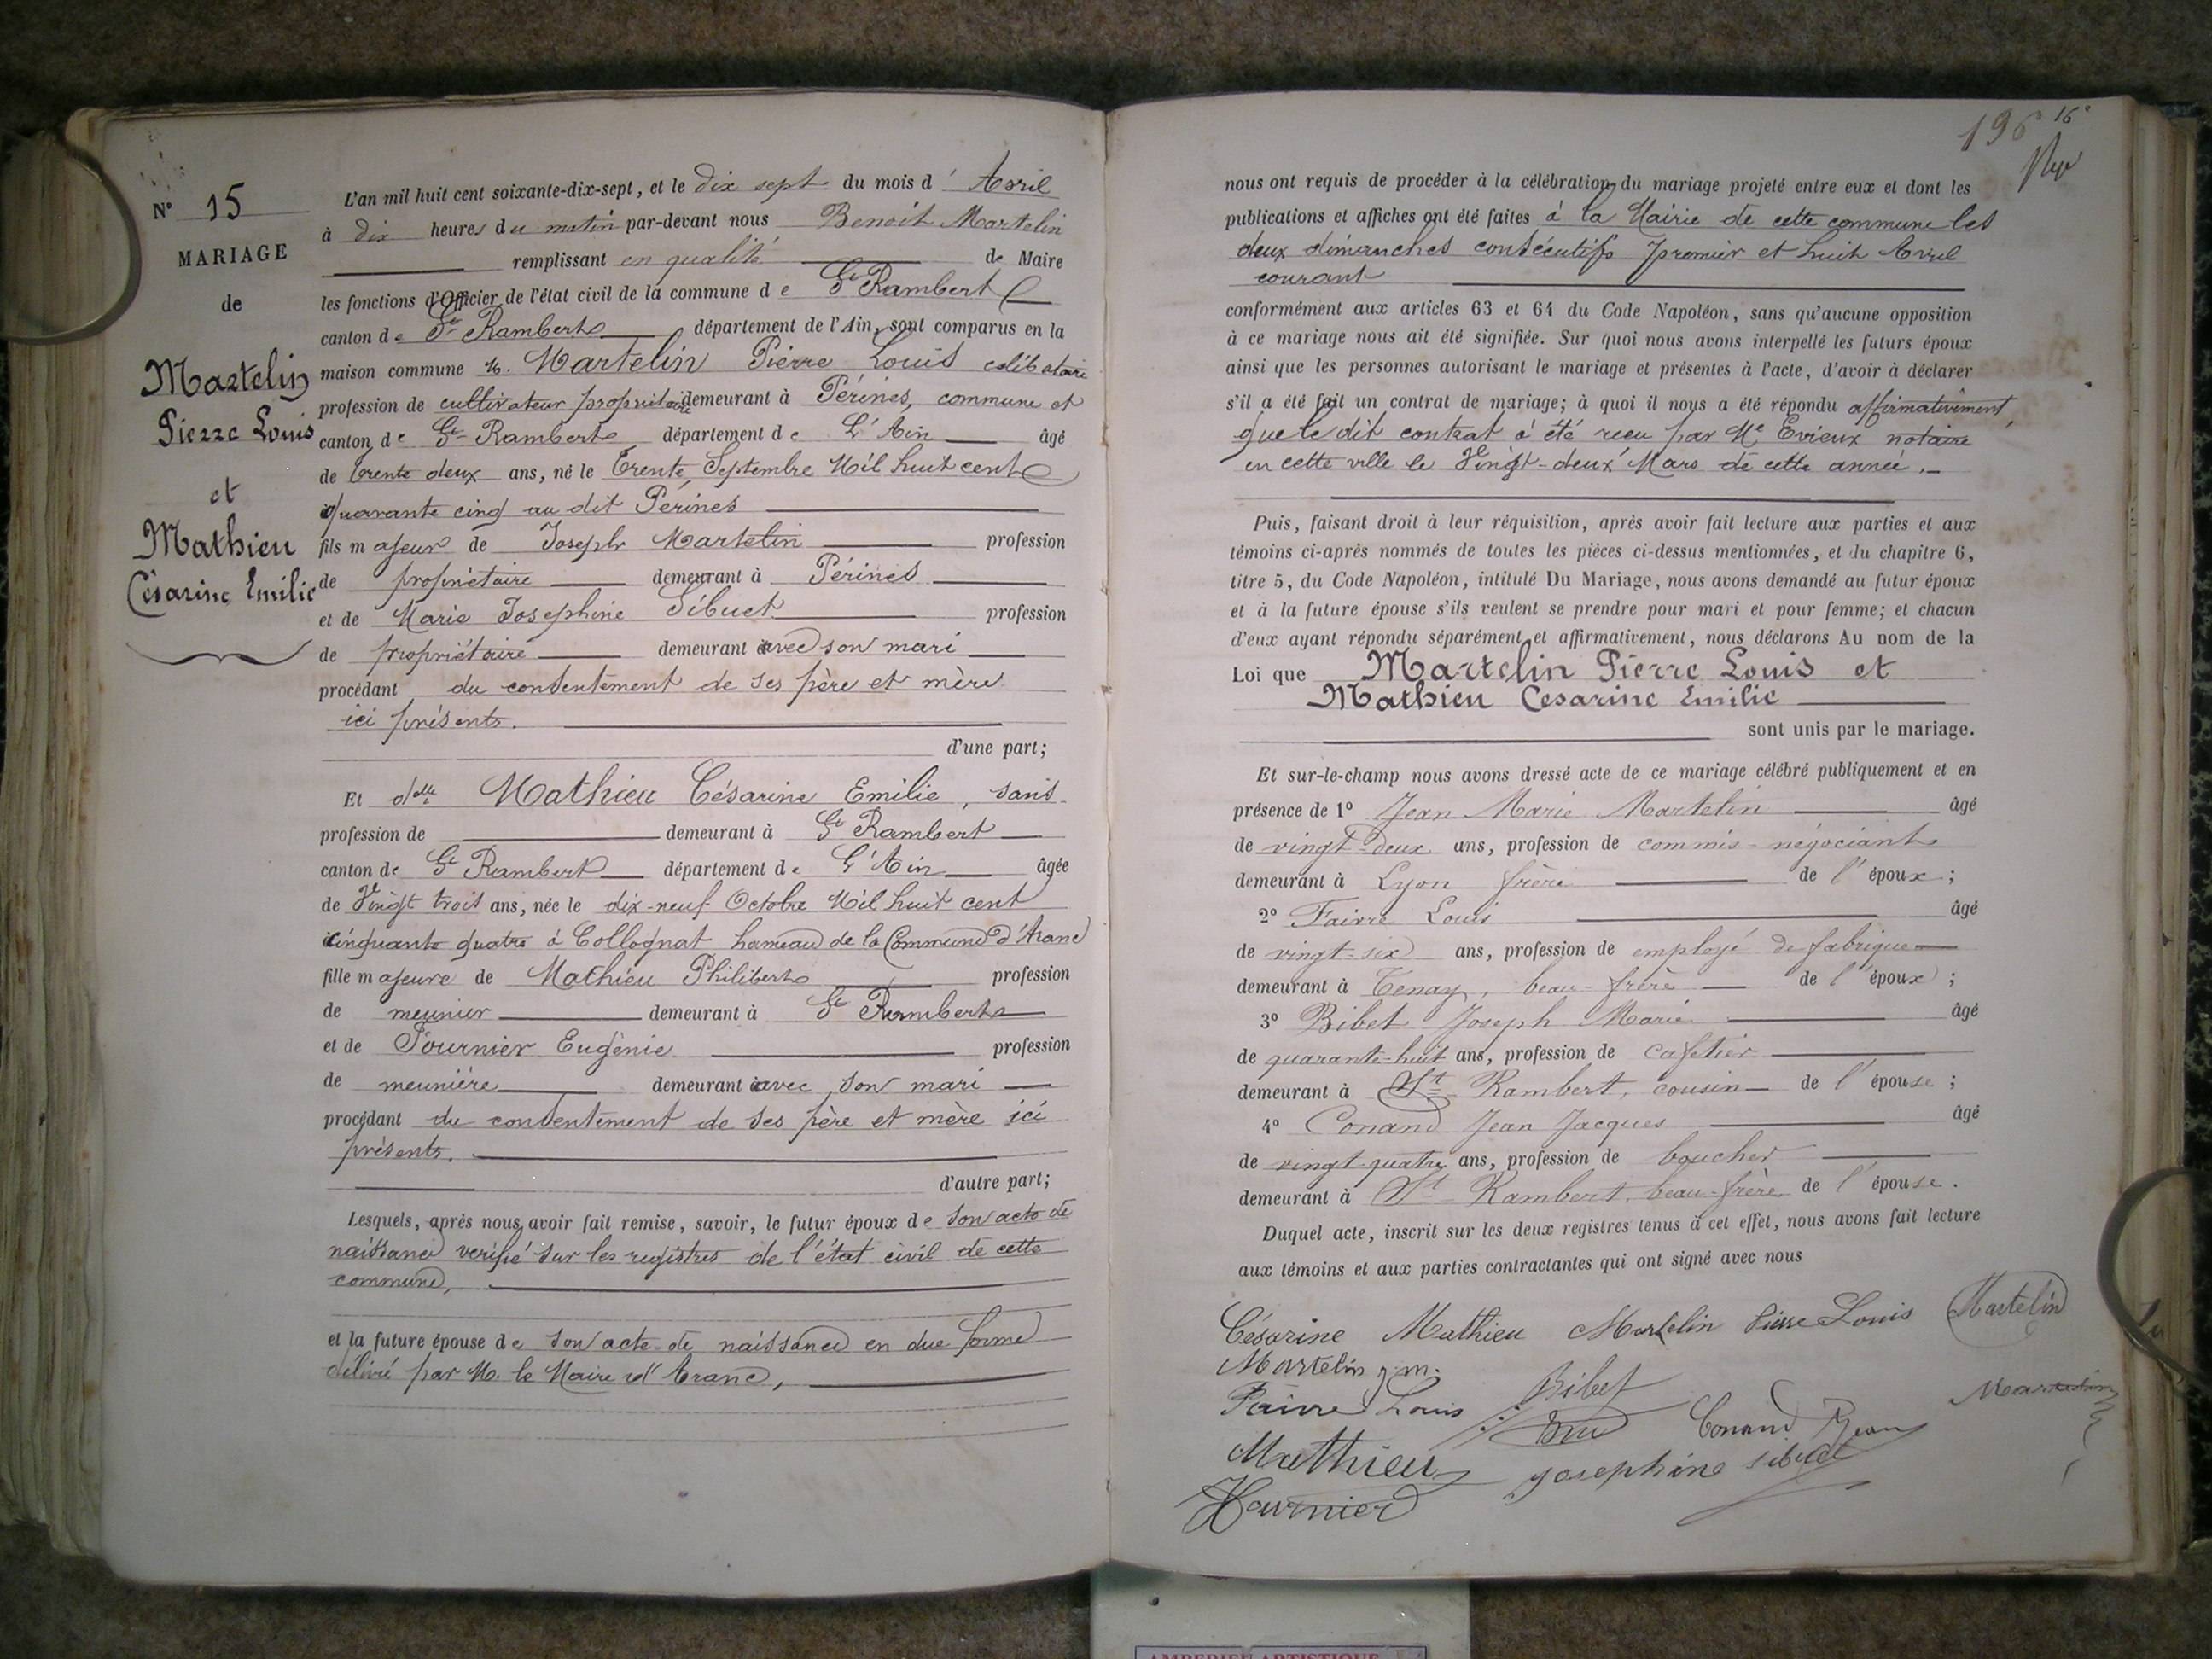 N° 15
MARIAGE
de
Martelin
Pierre Louis
et
Mathieu
Césarine Emilie
L'an mil huit cent soixante-dix-sept, et le dix sept du mois d' Avril
à dix heures du matin par-devant nous Benoit Martelin
remplissant en qualité de Maire
les fonctions d'Officier de l'état civil de la commune de St Rambert
canton de St Rambert département de l'Ain, sont comparus en la
maison commune M. Martelin Pierre Louis célibataire
profession de cultivateur propriétaire demeurant à Pérines, commune et
canton de St Rambert département de L'Ain âgé
de trente deux ans, né le Trente Septembre Mil huit cent
quarante cinq au dit Pérines
fils majeur de Joseph Martelin profession
de propriétaire demeurant à Pérines
et de Marie Josephine Sibuet profession
de propriétaire demeurant avec son mari
procédant du consentement de ses père et mère
ici présents.
d'une part;
Et dlle Mathieu Césarine Emilie, sans
profession de demeurant à St Rambert
canton de St Rambert département de L'Ain âgée
de Vingt trois ans, née le dix-neuf Octobre Mil huit cent
cinquante quatre à Collognat hameau de la Commune d'Aranc
fille majeure de Mathieu Philibert profession
de meunier demeurant à St Rambert
et de Fournier Eugénie profession
de meunière demeurant avec son mari
procédant du consentement de ses père et mère ici
présents.
d'autre part;
Lesquels, après nous avoir fait remise, savoir, le futur époux de son acte de
naissance verifié sur les registres de l'état civil de cette
commune,
et la future épouse de son acte de naissance en due forme
délivré par M. le Maire d'Aranc,
196 16e
nous ont requis de procéder à la célébration du mariage projeté entre eux et dont les
publications et affiches ont été faites à la Mairie de cette commune les
deux dimanches consécutifs premier et huit Avril
courant
conformément aux articles 63 et 64 du Code Napoléon, sans qu'aucune opposition
à ce mariage nous ait été signifiée. Sur quoi nous avons interpellé les futurs époux
ainsi que les personnes autorisant le mariage et présentes à l'acte, d'avoir à déclarer
s'il a été fait un contrat de mariage; à quoi il nous a été répondu affirmativement,
que le dit contrat a été reçu par Me Evieux notaire
en cette ville le Vingt-deux Mars de cette année.
Puis, faisant droit à leur réquisition, après avoir fait lecture aux parties et aux
témoins ci-après nommés de toutes les pièces ci-dessus mentionnées, et du chapitre 6,
titre 5, du Code Napoléon, intitulé Du Mariage, nous avons demandé au futur époux
et à la future épouse s'ils veulent se prendre pour mari et pour femme; et chacun
d'eux ayant répondu séparément et affirmativement, nous déclarons Au nom de la
Loi que Martelin Pierre Louis et
Mathieu Cesarine Emilie
sont unis par le mariage.
Et sur-le-champ nous avons dressé acte de ce mariage célébré publiquement et en
présence de 1° Jean Marie Martelin âgé
de vingt-deux ans, profession de commis-négociant
demeurant à Lyon frère de l'époux;
2° Faivre Louis âgé
de vingt-six ans, profession de employé de fabrique
demeurant à Tenay, beau-frère de l'époux;
3° Bibet Joseph Marie âgé
de quarante-huit ans, profession de cafetier
demeurant à St Rambert, cousin de l'épouse;
4° Conand Jean Jacques âgé
de vingt-quatre ans, profession de boucher
demeurant à St Rambert, beau-frère de l'épouse.
Duquel acte, inscrit sur les deux registres tenus à cet effet, nous avons fait lecture
aux témoins et aux parties contractantes qui ont signé avec nous
Césarine Mathieu Martelin Pierre Louis Martelin
Martelin j. m.
Faivre Louis Bibet Conand Jean Martelin
Mathieu Josephine Sibuet
Fournier
AMBERIEU ARTISTIQUE